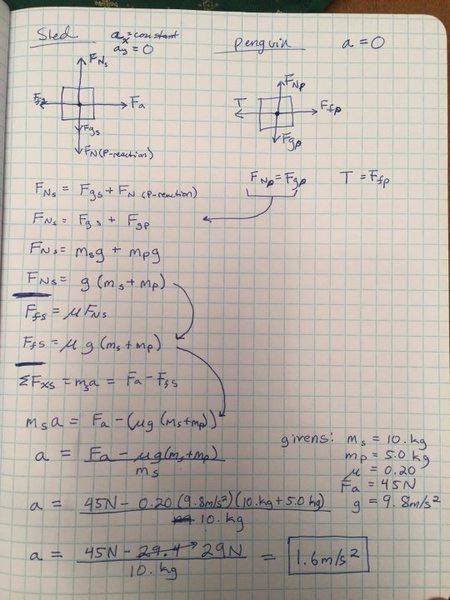 Sled
aₓ = constant
a_y = 0
penguin
a = 0
F_Ns
F_a
F_gs
F_N (P-reaction)
F_Np
T
F_fp
F_gp
F_Ns = F_gs + F_N (P-reaction)
F_Np = F_gp
T = F_fp
F_Ns = F_gs + F_gp
F_Ns = m_s g + m_p g
F_Ns = g (m_s + m_p)
F_fs = μ F_Ns
F_fs = μ g (m_s + m_p)
ΣF_xs = m_s a = F_a - F_fs
m_s a = F_a - (μg (m_s + m_p))
a = F_a - μg (m_s + m_p) / m_s
givens: m_s = 10. kg
m_p = 5.0 kg
μ = 0.20
F_a = 45N
g = 9.8 m/s²
a = 45N - 0.20 (9.8 m/s²) (10. kg + 5.0 kg) / 10. kg
a = 45N - 29.4 29N / 10. kg = 1.6 m/s²